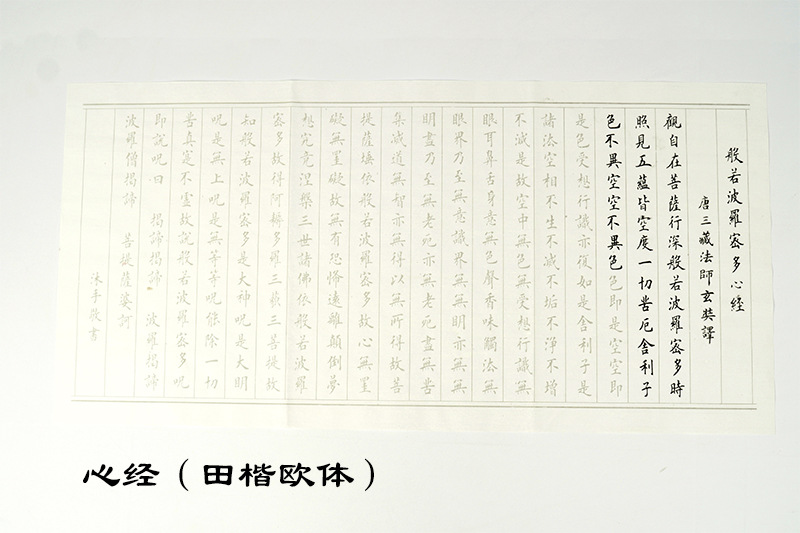 般若波羅蜜多心経
唐三藏法師玄奘譯
觀自在菩薩行深般若波羅蜜多時
照見五蘊皆空度一切苦厄舍利子
色不異空空不異色色即是空空即
是色受想行識亦復如是舍利子是
諸法空相不生不滅不垢不淨不增
不減是故空中無色無受想行識無
眼耳鼻舌身意無色聲香味觸法無
眼界乃至無意識界無無明亦無無
明盡乃至無老死亦無老死盡無苦
集滅道無智亦無得以無所得故菩
提薩埵依般若波羅蜜多故心無罣
礙無罣礙故無有恐怖遠離顛倒夢
想究竟涅槃三世諸佛依般若波羅
蜜多故得阿耨多羅三藐三菩提故
知般若波羅蜜多是大神呪是大明
呪是無上呪是無等等呪能除一切
苦真實不虛故說般若波羅蜜多呪
即說呪曰 揭諦揭諦 波羅揭諦
波羅僧揭諦 菩提薩婆訶
沐手敬書
心经（田楷欧体）